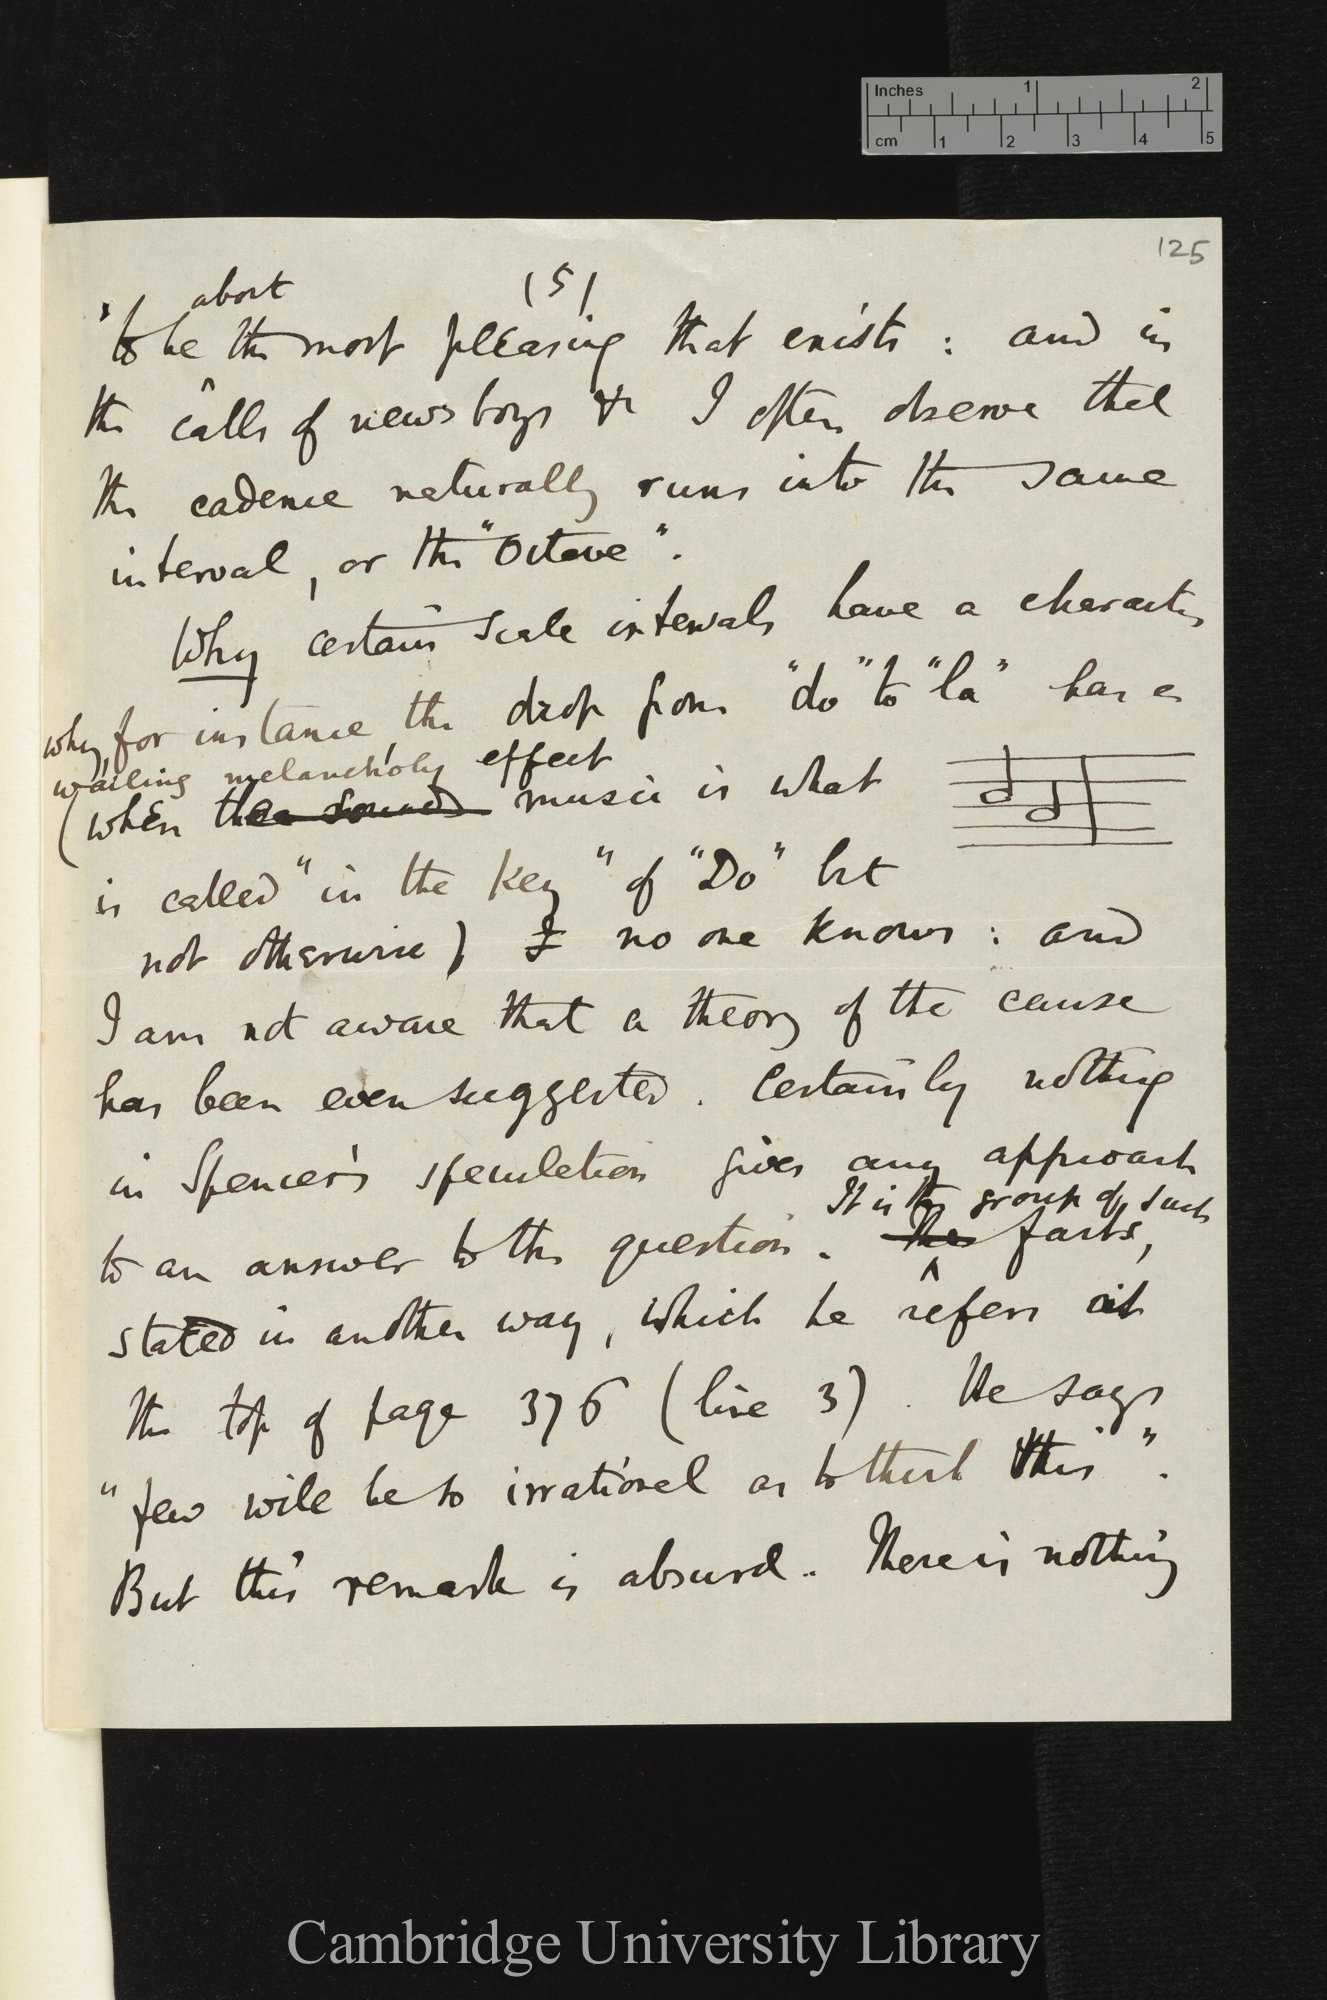 Inches 1 2
cm 1 2 3 4 5
125
(5)
about
to be the most pleasing that exists : and in
the calls of newsboys &c I often observe that
the cadence naturally runs into the same
interval, or the "Octave".
Why certain scale intervals have a character
why, for instance the drop from "do" to "la" has a
wailing melancholy effect
(when the sound music is what
is called "in the key" of "Do" but
not otherwise) I no one knows : and
I am not aware that a theory of the cause
has been even suggested. Certainly nothing
in Spencer's speculation gives any approach
It is the group of such
to an answer to the question. The facts,
stated in another way, which he refers at
the top of page 376 (line 3). He says
"few will be so irrational as to think this".
But this remark is absurd. There is nothing
Cambridge University Library